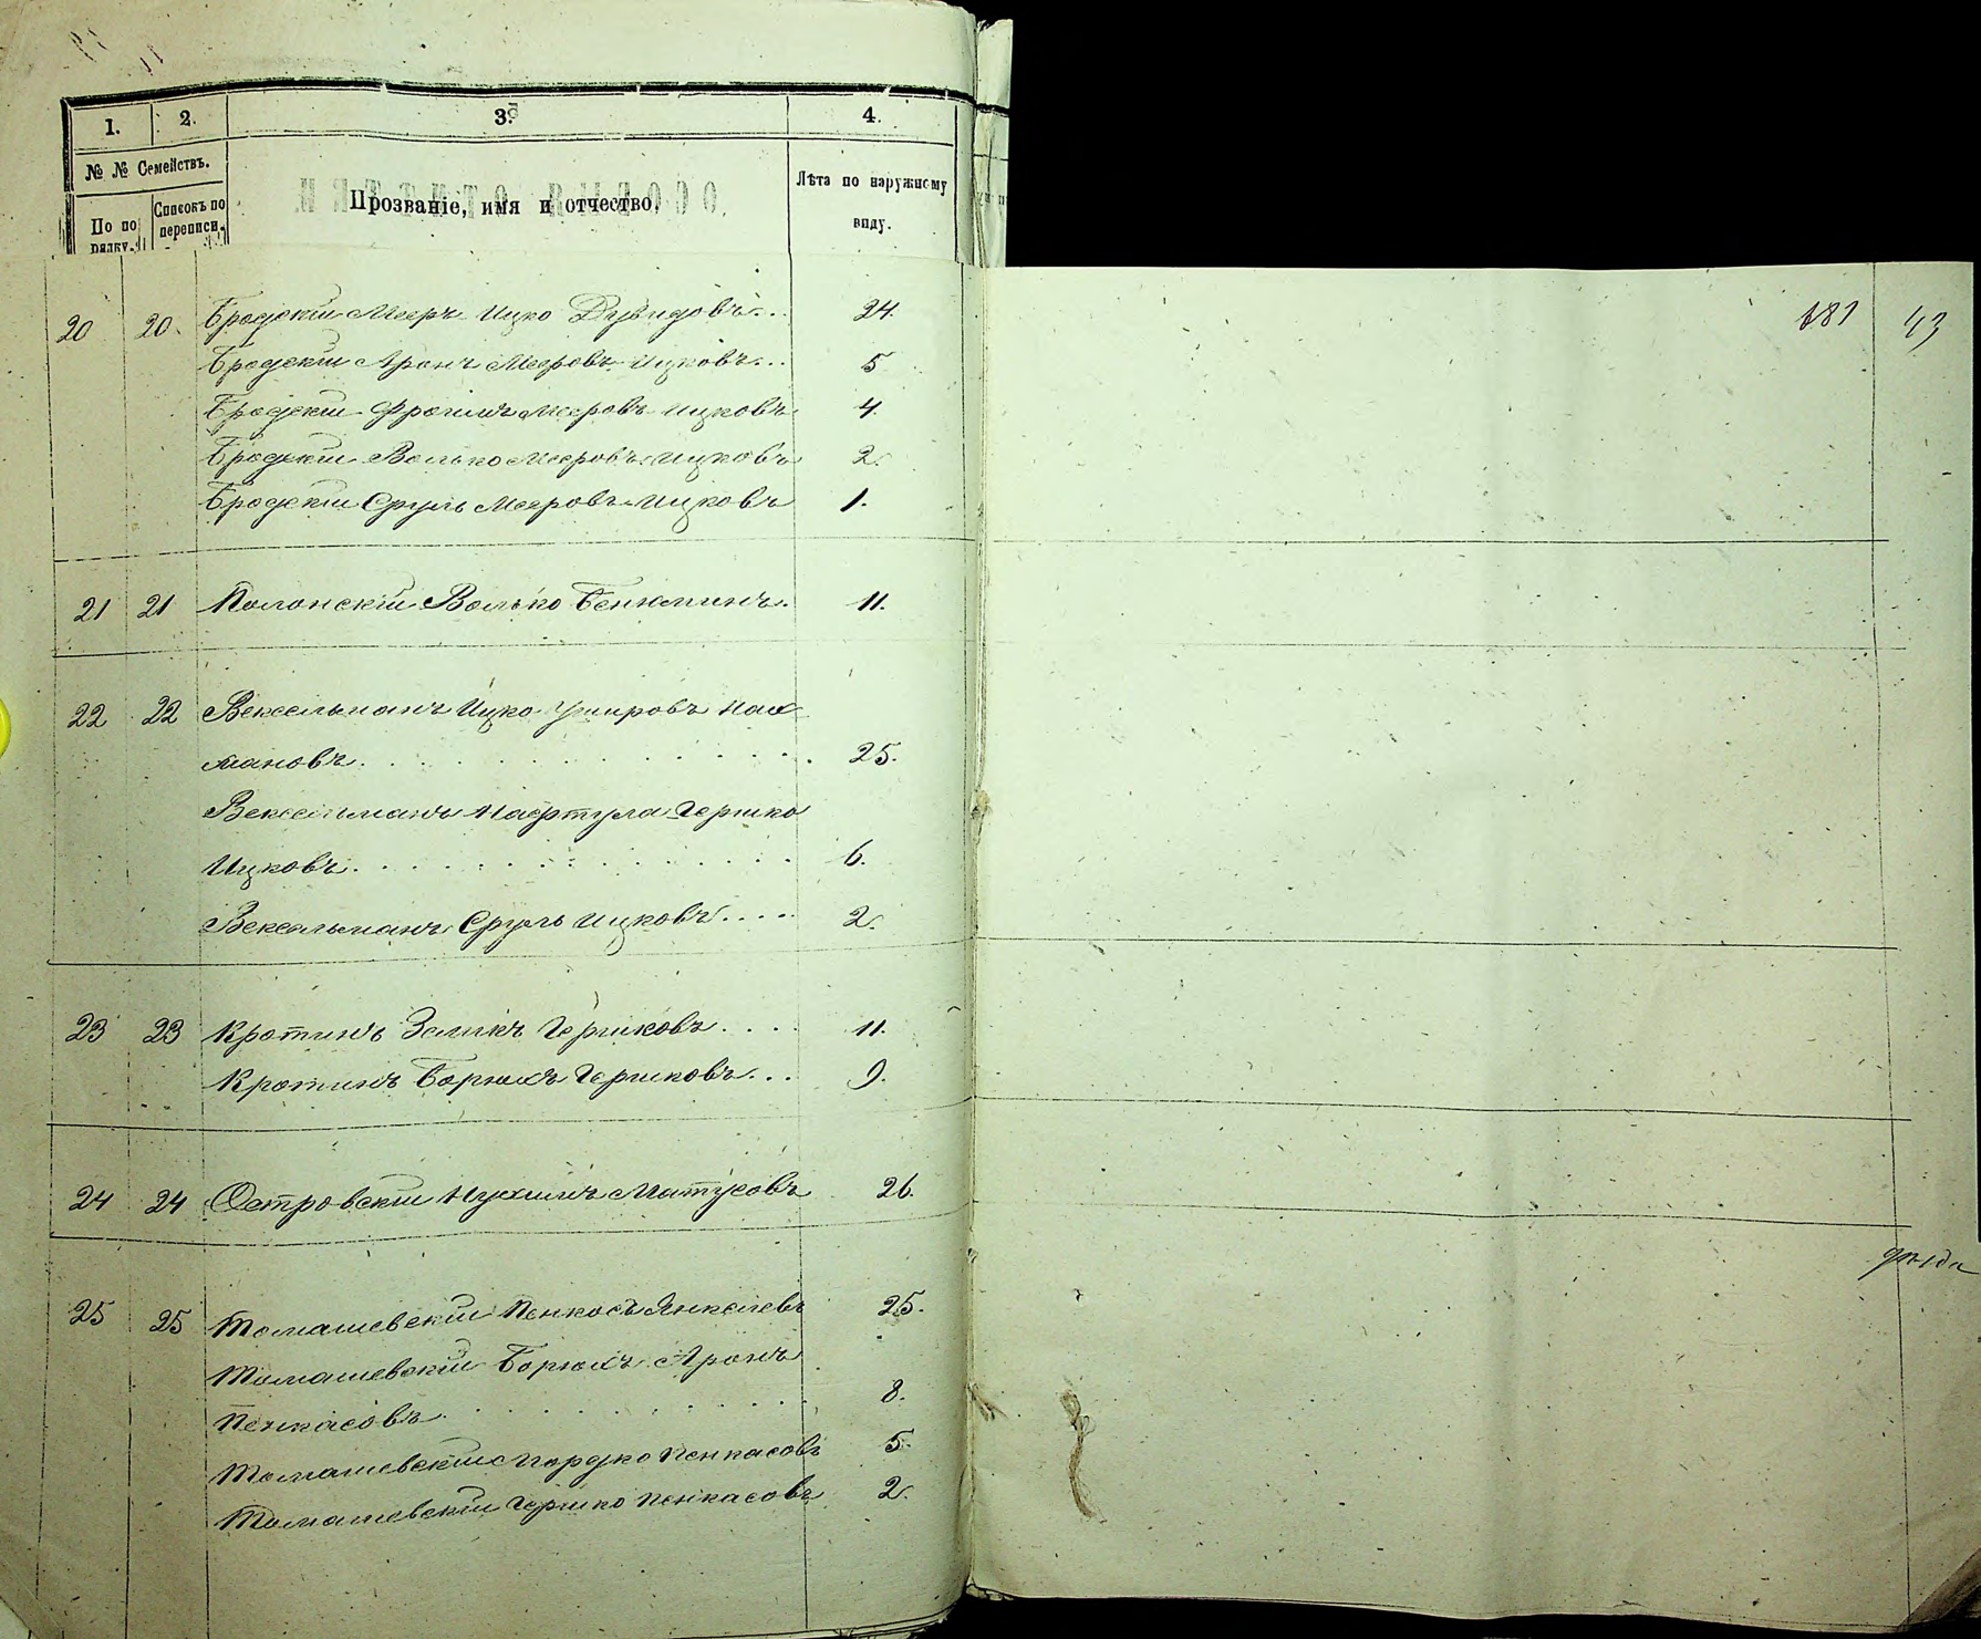 1. 2. 3. 4.
№ № Семействъ.
По по рядку.
Списокъ по переписи.
Прозваніе, имя и отчество.
Лѣта по наружному виду.
181 43
20 20. Бродскій Мееръ Ицко Дувидовъ... 24.
Бродскій Аронъ Мееровъ Ицковъ... 5
Бродскій Фроимъ Мееровъ Ицковъ 4.
Бродскій Волько Мееровъ Ицковъ 2.
Бродскій Сруль Мееровъ Ицковъ 1.
21 21 Полонскій Волько Бенюминъ. 11.
22 22 Вексельманъ Ицко Ушировъ Нах
мановъ. 25.
Вексельманъ Нафтула Гершко
Ицковъ. 6.
Вексельманъ Сруль Ицковъ..... 2.
23 23 Кротинъ Зеликъ Гершковъ.... 11.
Кротинъ Борухъ Гершковъ... 9.
24 24 Островскій Нухимъ Матусовъ 26.
25 25 Томашевскій Пенкосъ Янкелевъ 25.
Томашевскій Борухъ Аронъ
Пенкасовъ. 8.
Томашевскій Мордко Пенкасовъ 5.
Томашевскій Гершко Пенкасовъ 2.